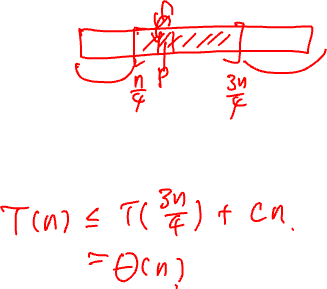 p
n/4 3n/4
T(n) ≤ T(3n/4) + cn.
= Θ(n)